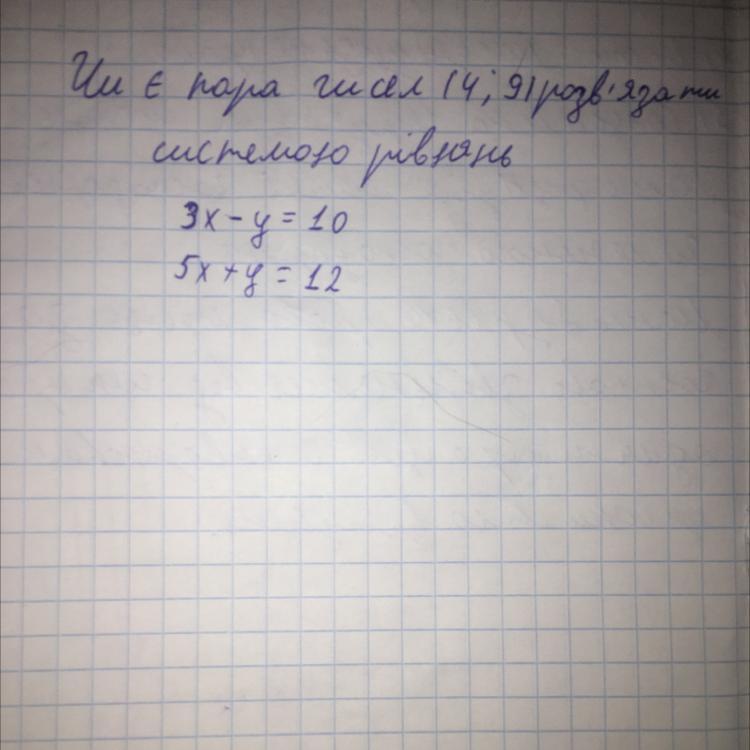 Чи є пара чисел (4; 9) розв'язати
системою рівнянь
3x - y = 10
5x + y = 12